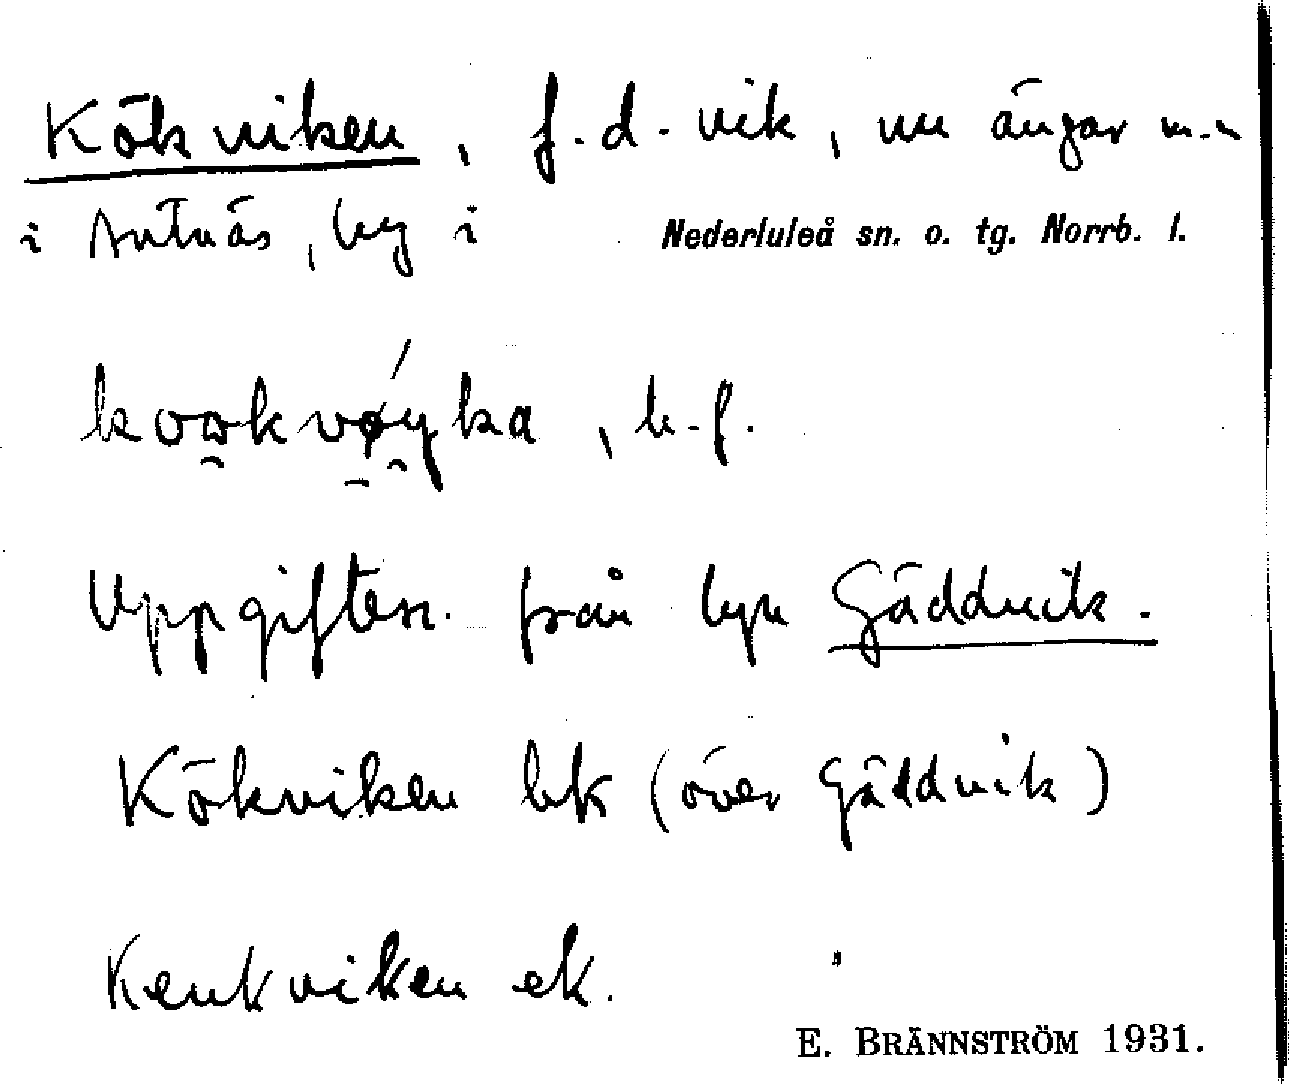 Kökviken, f.d. vik, nu ängar m.m
i Antnäs, by i Nederluleå sn. o. tg. Norrb. l.
b.f.
Uppgiften från byn Gäddvik.
Kökviken bk (över Gäddvik)
Keukviken ek. "
E. BRÄNNSTRÖM 1931.